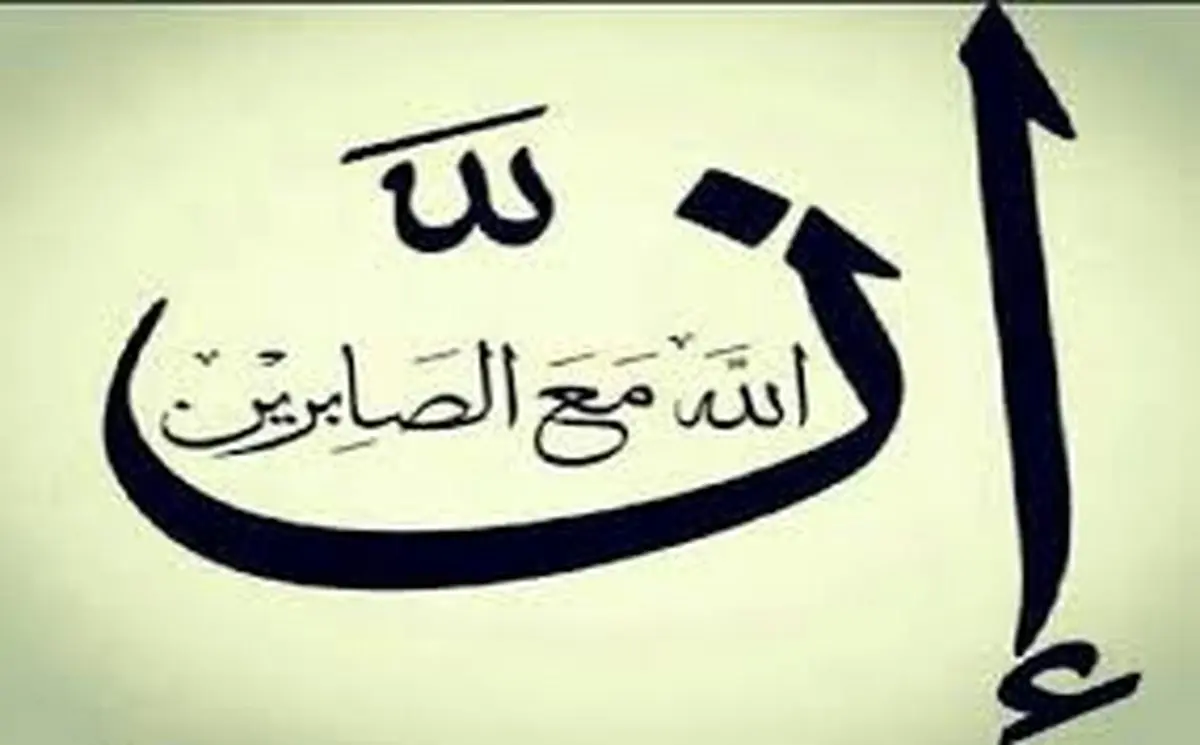 إنَّ اللَّهَ مَعَ الصَابِرِيْن